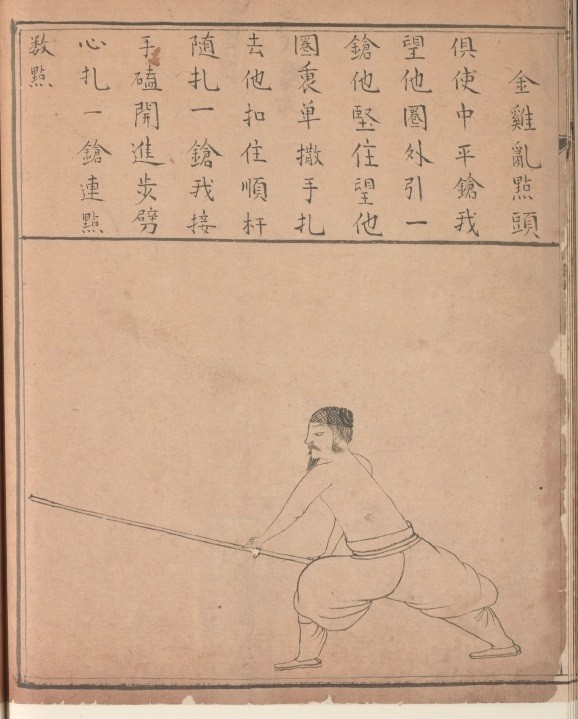 金雞亂點頭
俱使中平鎗我
望他圏外引一
鎗他堅住望他
圏裏单撒手扎
去他扣住順杆
随扎一鎗我接
手磕開進步劈
心扎一鎗連點
数點